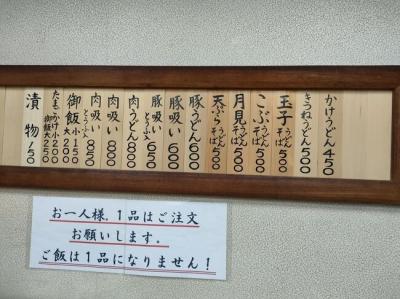 かけうどん 450
きつねうどん 500
玉子うどんそば 500
こぶうどんそば 500
月見うどんそば 500
天ぷらうどんそば 500
豚うどん 600
豚吸い 600
豚吸いとうふ入 650
肉うどん 800
肉吸い 800
肉吸いとうふ入 850
御飯 小150 大200
たまごかけ御飯 小200 大250
漬物 150
お一人様、1品はご注文
お願いします。
ご飯は1品になりません!